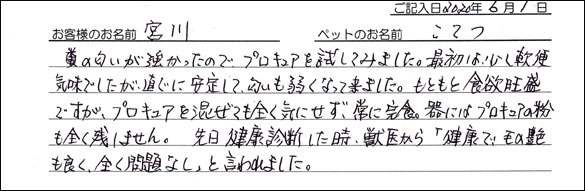 ご記入日2020年6月1日
お客様のお名前 宮川 ペットのお名前 こてつ
糞の匂いが強かったので プロキュアを試してみました。最初は少し軟便
気味でしたが、直ぐに安定して、匂いも弱くなって来ました。もともと食欲旺盛
ですが、プロキュアを混ぜても全く気にせず、常に完食。器にはプロキュアの粉
も全く残しません。 先日健康診断した時、獣医から「健康で毛の艶
も良く、全く問題なし」と言われました。